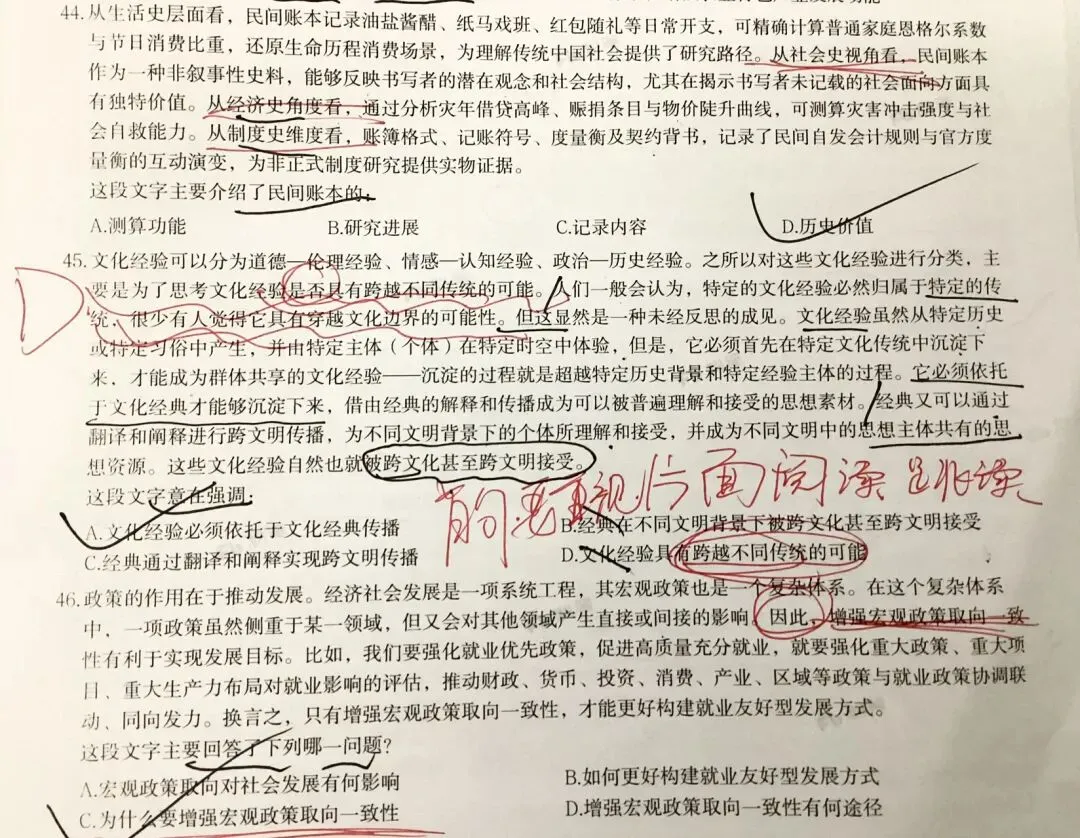 44.从生活史层面看，民间账本记录油盐酱醋、纸马戏班、红包随礼等日常开支，可精确计算普通家庭恩格尔系数
与节日消费比重，还原生命历程消费场景，为理解传统中国社会提供了研究路径。从社会史视角看，民间账本
作为一种非叙事性史料，能够反映书写者的潜在观念和社会结构，尤其在揭示书写者未记载的社会面向方面具
有独特价值。从经济史角度看，通过分析灾年借贷高峰、赈捐条目与物价陡升曲线，可测算灾害冲击强度与社
会自救能力。从制度史维度看，账簿格式、记账符号、度量衡及契约背书，记录了民间自发会计规则与官方度
量衡的互动演变，为非正式制度研究提供实物证据。
这段文字主要介绍了民间账本的：
A.测算功能 B.研究进展 C.记录内容 D.历史价值
45.文化经验可以分为道德—伦理经验、情感—认知经验、政治—历史经验。之所以对这些文化经验进行分类，主
要是为了思考文化经验是否具有跨越不同传统的可能。人们一般会认为，特定的文化经验必然归属于特定的传
统，很少有人觉得它具有穿越文化边界的可能性。但这显然是一种未经反思的成见。文化经验虽然从特定历史
或特定习俗中产生，并由特定主体（个体）在特定时空中体验，但是，它必须首先在特定文化传统中沉淀下
来，才能成为群体共享的文化经验——沉淀的过程就是超越特定历史背景和特定经验主体的过程。它必须依托
于文化经典才能够沉淀下来，借由经典的解释和传播成为可以被普遍理解和接受的思想素材。经典又可以通过
翻译和阐释进行跨文明传播，为不同文明背景下的个体所理解和接受，并成为不同文明中的思想主体共有的思
想资源。这些文化经验自然也就被跨文化甚至跨文明接受。
这段文字意在强调：
A.文化经验必须依托于文化经典传播 B.经典在不同文明背景下被跨文化甚至跨文明接受
C.经典通过翻译和阐释实现跨文明传播 D.文化经验具有跨越不同传统的可能
46.政策的作用在于推动发展。经济社会发展是一项系统工程，其宏观政策也是一个复杂体系。在这个复杂体系
中，一项政策虽然侧重于某一领域，但又会对其他领域产生直接或间接的影响。因此，增强宏观政策取向一致
性有利于实现发展目标。比如，我们要强化就业优先政策，促进高质量充分就业，就要强化重大政策、重大项
目、重大生产力布局对就业影响的评估，推动财政、货币、投资、消费、产业、区域等政策与就业政策协调联
动、同向发力。换言之，只有增强宏观政策取向一致性，才能更好构建就业友好型发展方式。
这段文字主要回答了下列哪一问题？
A.宏观政策取向对社会发展有何影响 B.如何更好构建就业友好型发展方式
C.为什么要增强宏观政策取向一致性 D.增强宏观政策取向一致性有何途径